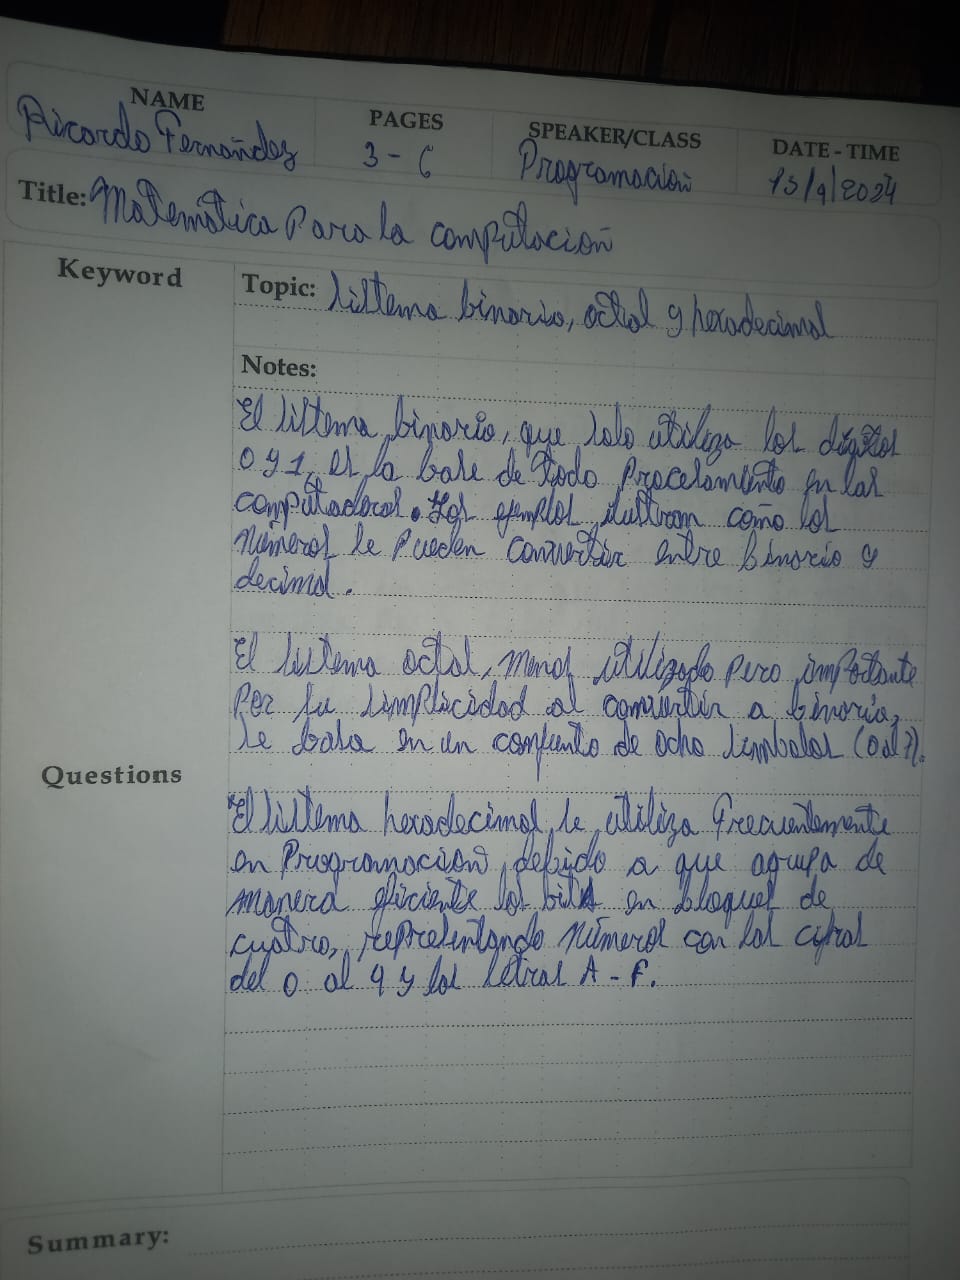 NAME PAGES SPEAKER/CLASS DATE - TIME
Ricardo Fernández 3 - 6 Programación 13/9/2024
Title: Matemática Para la computación
Keyword
Topic: sistema binario, octal y hexadecimal
Notes:
El sistema binario, que solo utiliza los dígitos
0 y 1, es la base de todo procesamiento en las
computadoras. Los ejemplos ilustran como los
números se pueden convertir entre binario y
decimal.
El sistema octal, menos utilizado pero importante
por su simplicidad al convertir a binario,
se basa en un conjunto de ocho símbolos (0 al 7).
Questions
El sistema hexadecimal se utiliza frecuentemente
en Programación, debido a que agrupa de
manera eficiente los bits en bloques de
cuatro, representando números con las cifras
del 0 al 9 y las letras A - F.
Summary: